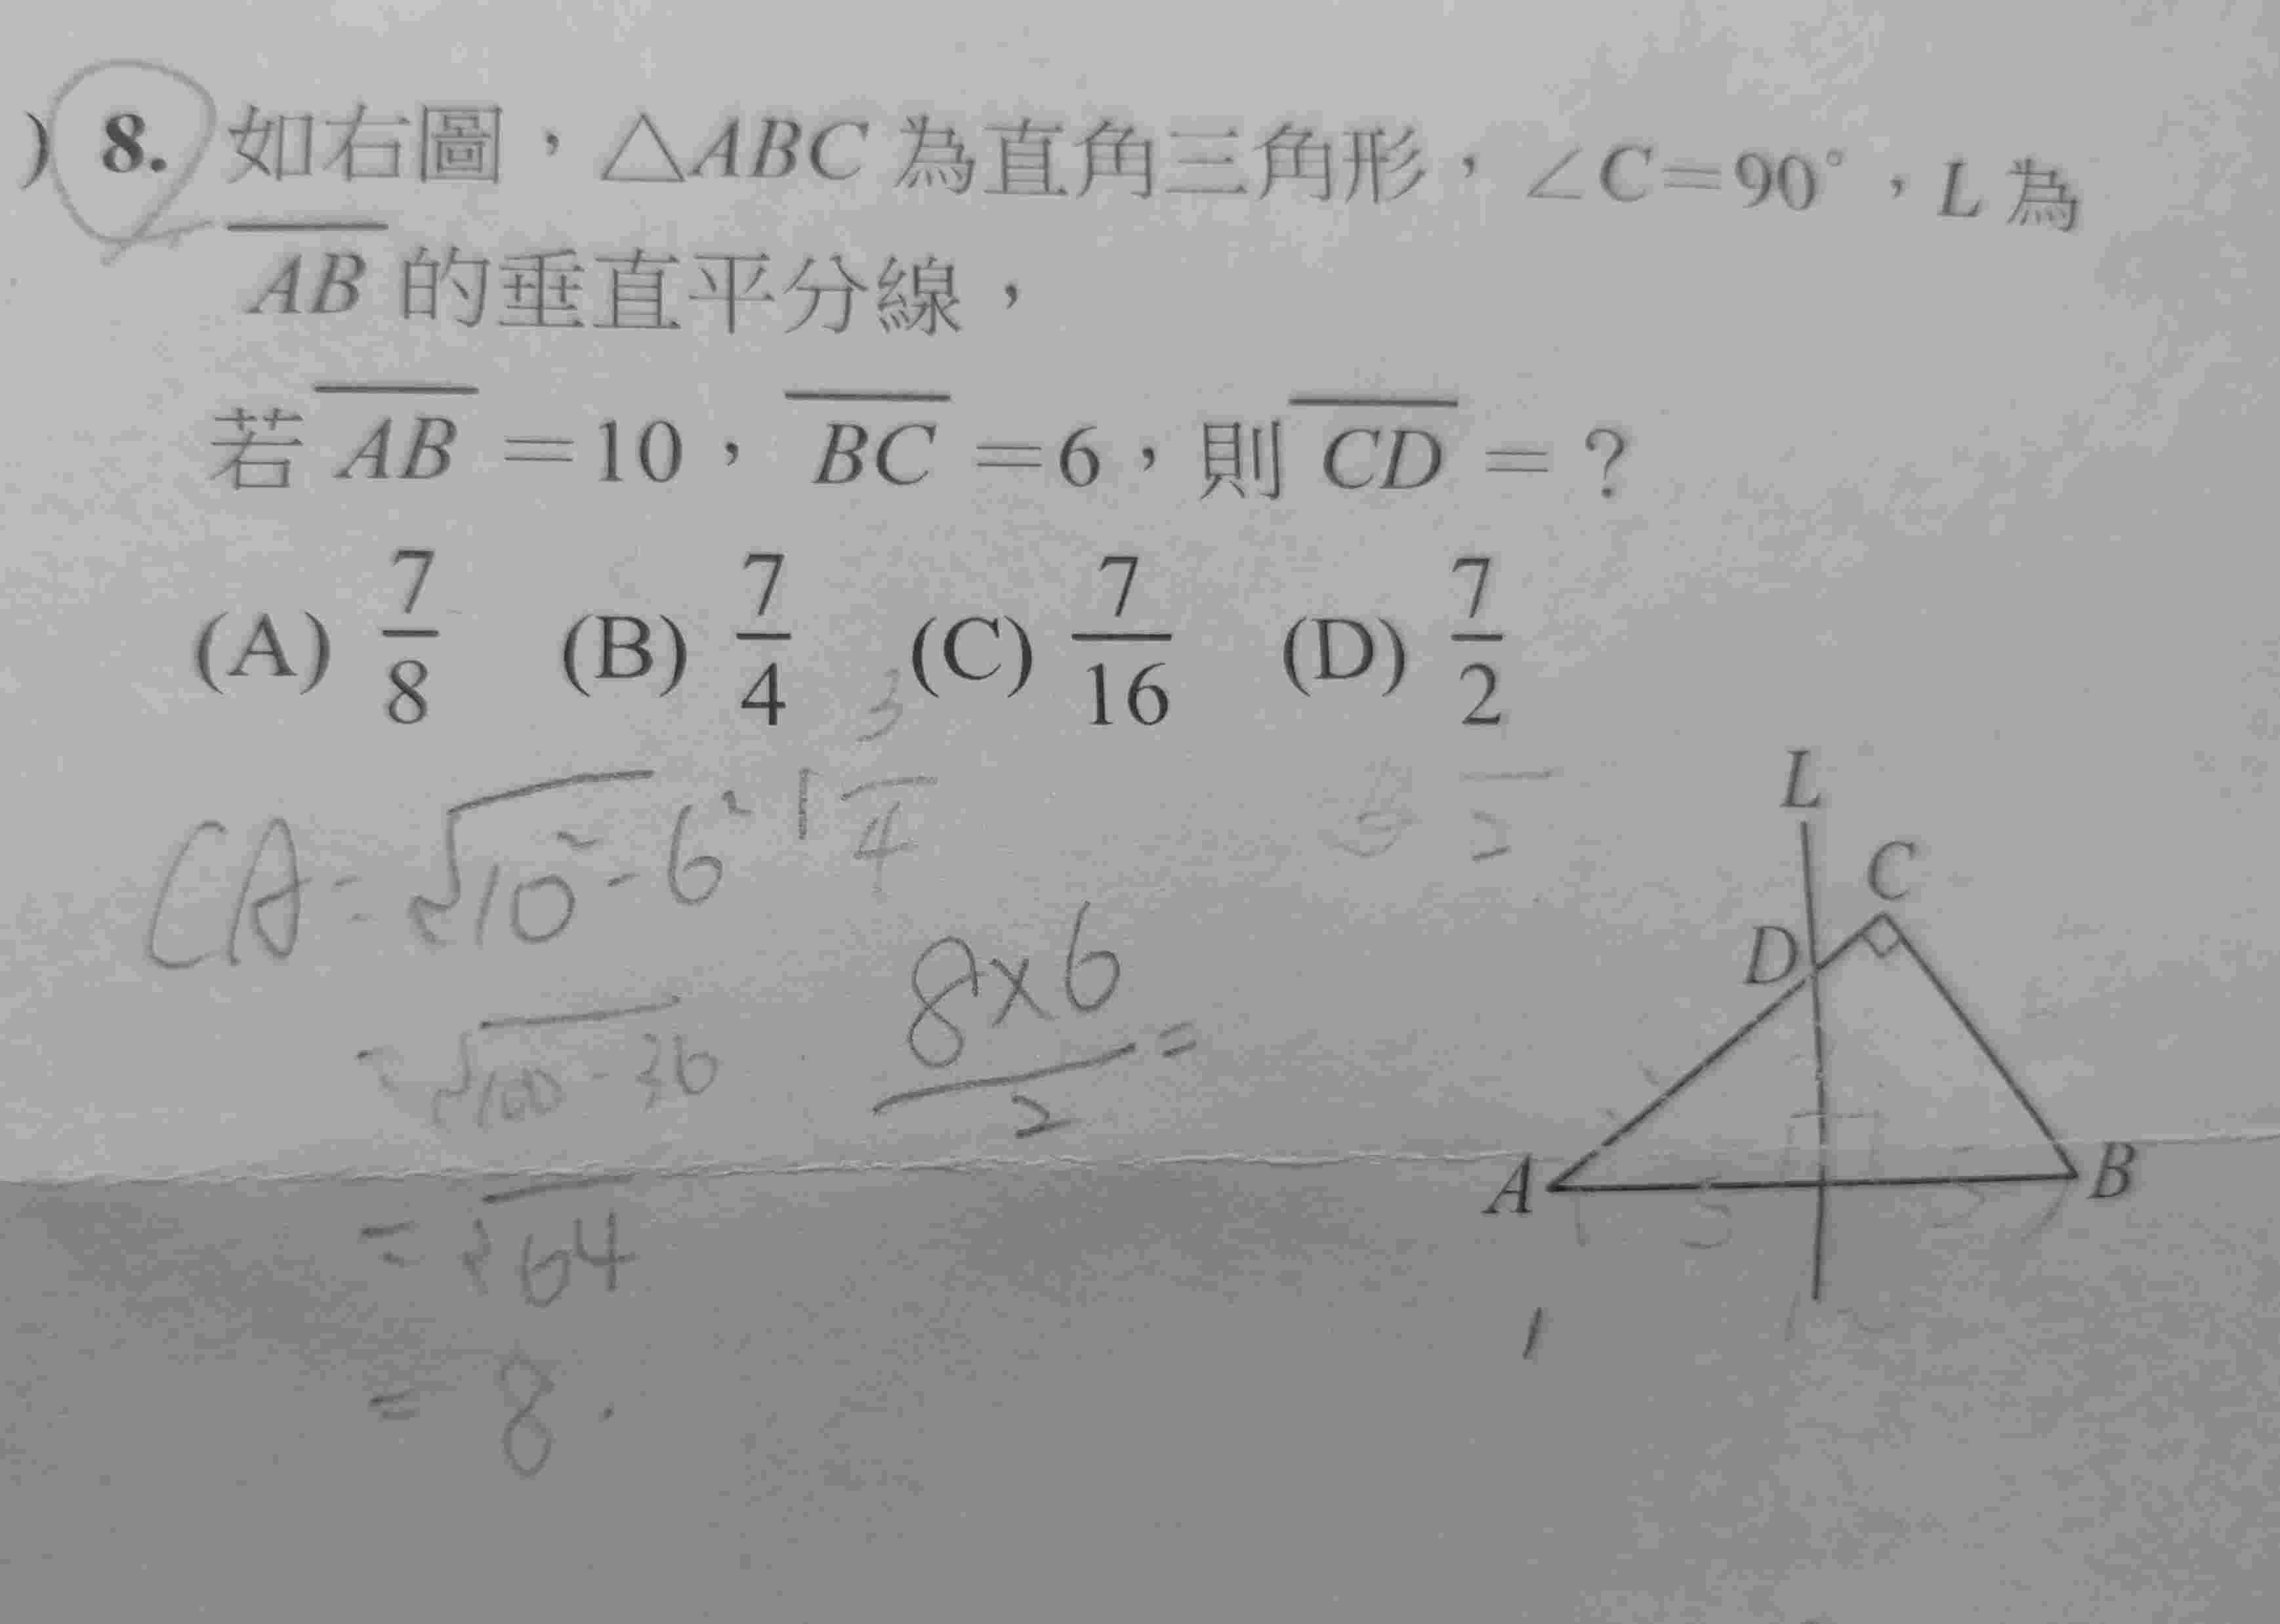 ) 8. 如右圖，△ABC 為直角三角形，∠C=90°，L 為
AB 的垂直平分線，
若 AB =10，BC =6，則 CD =？
(A) 7/8 (B) 7/4 (C) 7/16 (D) 7/2
1 3/4
2
CA=√10²-6²
=√100-36
=√64
=8.
8×6/2=
L
C
D
A
B
5